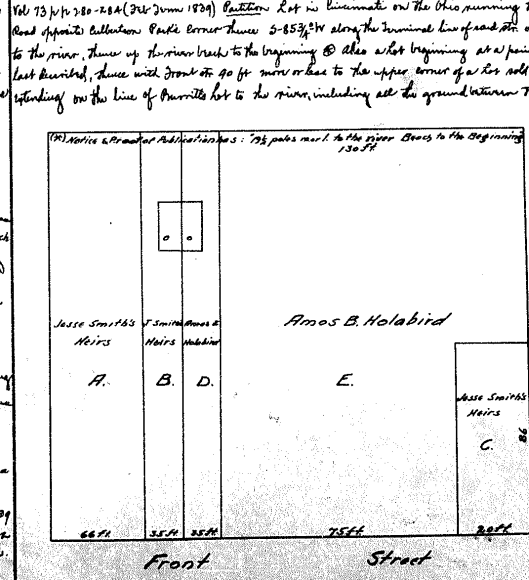 Vol 73 pp 280-284 (Feb Term 1839) Partition Lot in Cincinnati on the Ohio running
Road opposite Culbertson Park's corner thence S-85¾°W along the Terminal line of said
to the river, thence up the river beach to the beginning Also a Lot beginning at a
last described, thence with Front str 90 ft more or less to the upper corner of a Lot sold
extending on the line of Burritts Lot to the river, including all the ground between
(*) Notice & Proof of Publication has: 19½ poles mor l. to the river Beach to the Beginning
130 ft
Jesse Smith's Heirs
A.
J Smiths Heirs
B.
Amos B Holabird
D.
Amos B. Holabird
E.
Jesse Smith's Heirs
C.
98
66 ft.
35 ft
35 ft
75 ft.
20 ft
Front Street